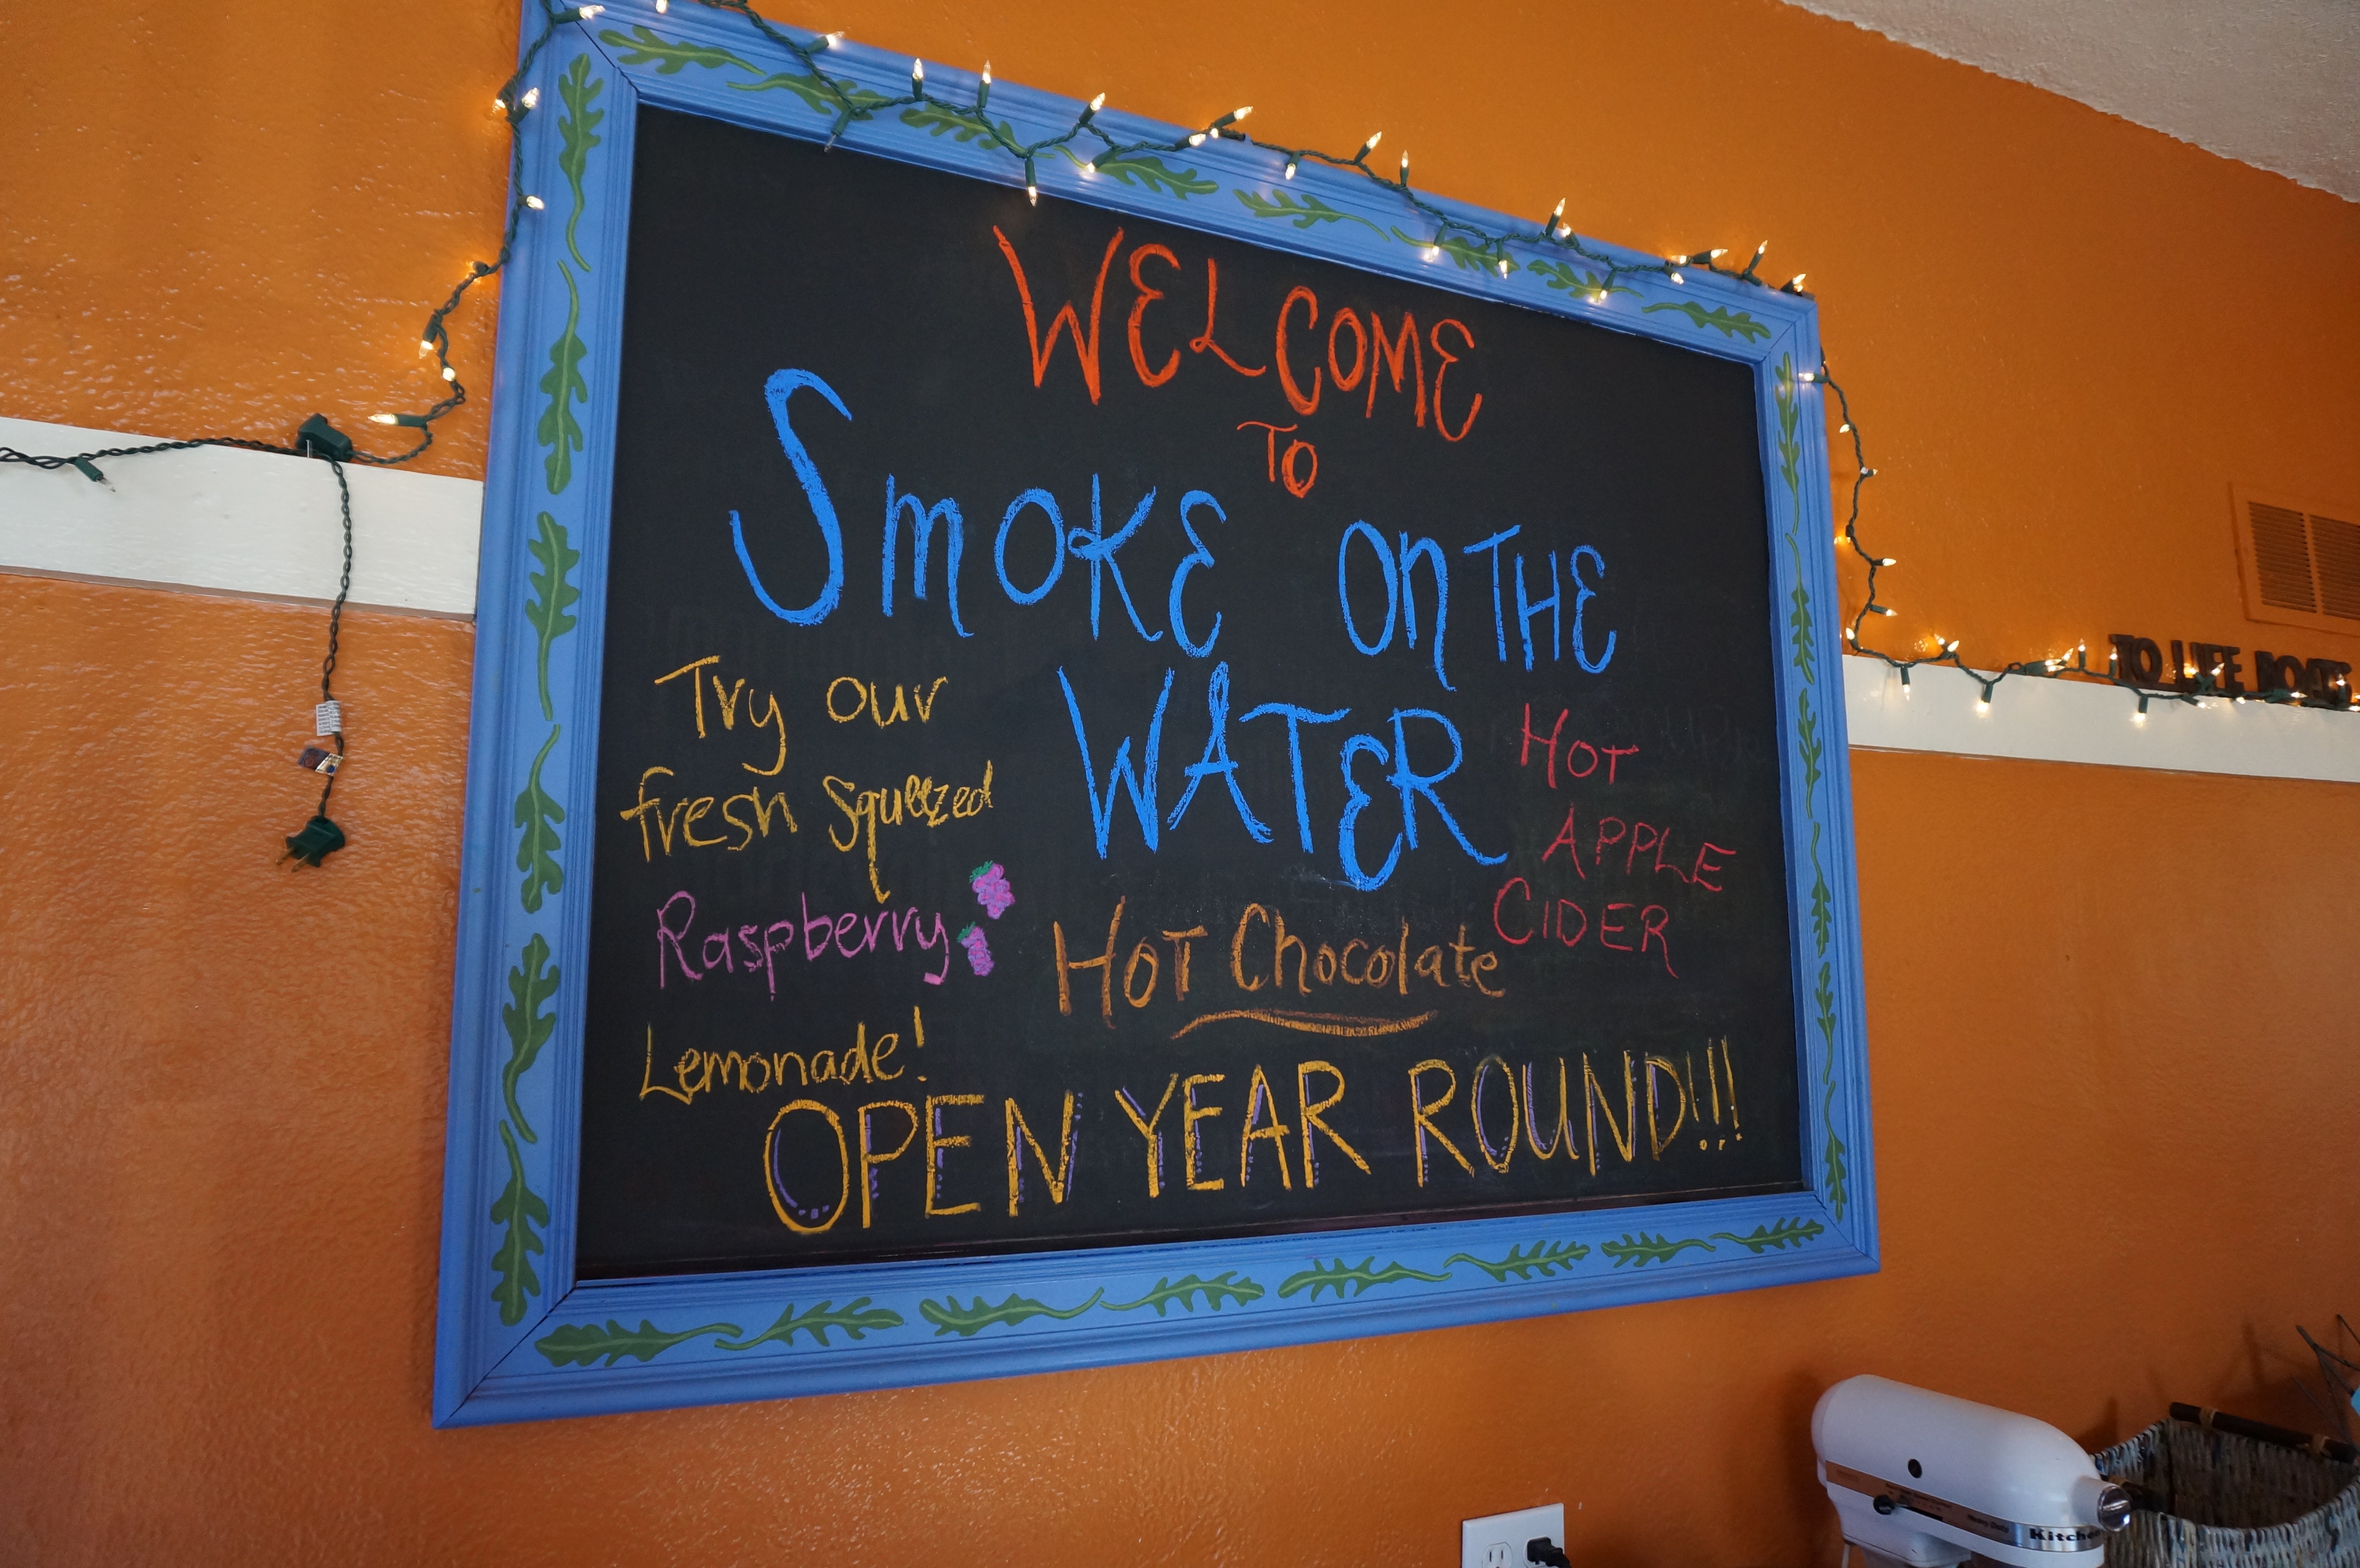 WELCOME
TO
SMOKE ON THE
WATER
Try our
fresh squeezed
Raspberry
Lemonade!
HOT
APPLE
CIDER
HOT Chocolate
OPEN YEAR ROUND!!!
TO LIFE BOATS
Heavy Duty